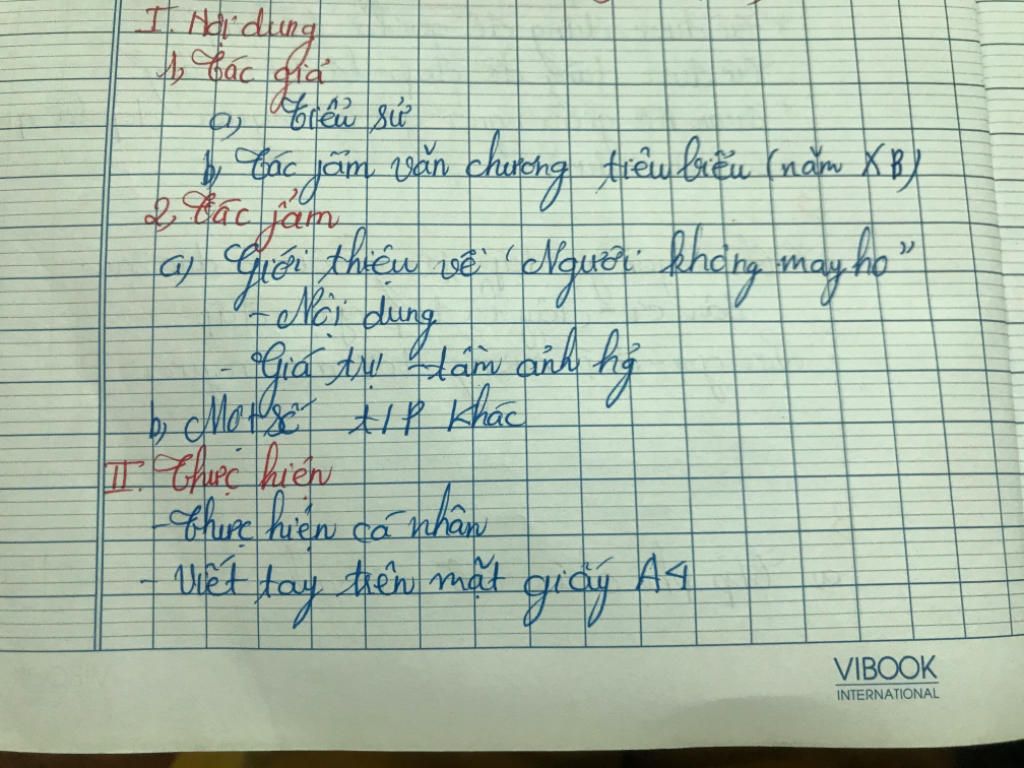 I. Nội dung
1, Tác giả
a, Tiểu sử
b, Tác fẩm văn chương tiêu biểu (năm XB)
2, Tác fẩm
a, Giới thiệu về "Người không mayho"
- Nội dung
- Giá trị - tầm ảnh hg̉
b, Một số t/p khác
II. Thực hiện
- Thực hiện cá nhân
- Viết tay trên mặt giấy A4
VIBOOK
INTERNATIONAL